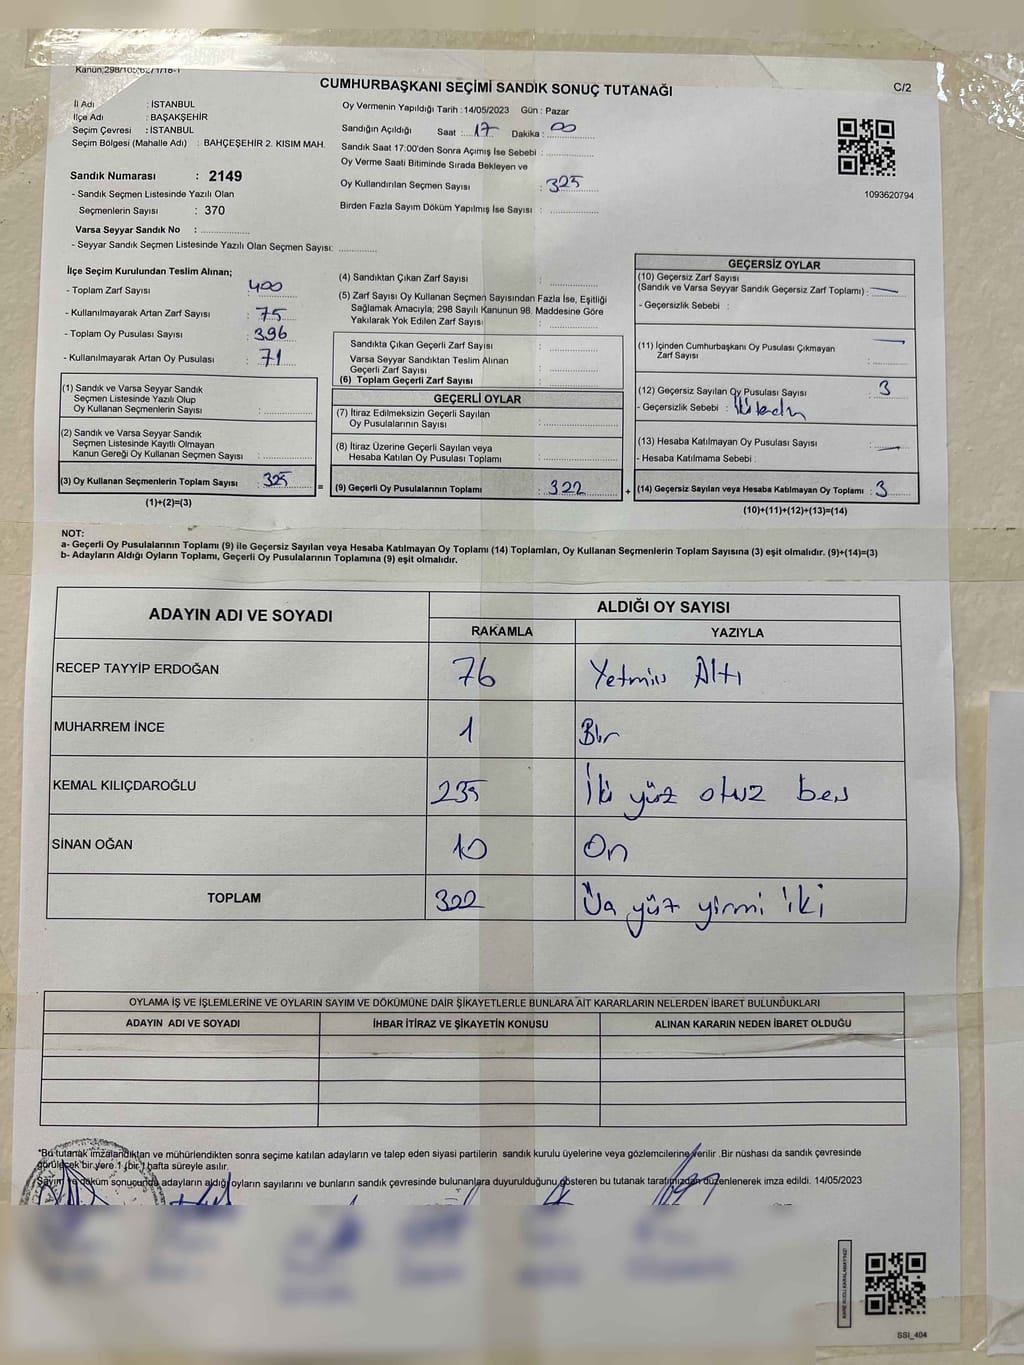 Kanun:298/105,6271/18-1
CUMHURBAŞKANI SEÇİMİ SANDIK SONUÇ TUTANAĞI
C/2
İl Adı : İSTANBUL
İlçe Adı : BAŞAKŞEHİR
Seçim Çevresi : İSTANBUL
Seçim Bölgesi (Mahalle Adı) : BAHÇEŞEHİR 2. KISIM MAH.
Sandık Numarası : 2149
- Sandık Seçmen Listesinde Yazılı Olan
Seçmenlerin Sayısı : 370
Varsa Seyyar Sandık No :
- Seyyar Sandık Seçmen Listesinde Yazılı Olan Seçmen Sayısı:
Oy Vermenin Yapıldığı Tarih : 14/05/2023 Gün : Pazar
Sandığın Açıldığı Saat : 17 Dakika : 00
Sandık Saat 17:00'den Sonra Açımış İse Sebebi :
Oy Verme Saati Bitiminde Sırada Bekleyen ve
Oy Kullandırılan Seçmen Sayısı : 325
Birden Fazla Sayım Döküm Yapılmış İse Sayısı :
1093620794
İlçe Seçim Kurulundan Teslim Alınan;
- Toplam Zarf Sayısı : 400
- Kullanılmayarak Artan Zarf Sayısı : 75
- Toplam Oy Pusulası Sayısı : 396
- Kullanılmayarak Artan Oy Pusulası : 71
(1) Sandık ve Varsa Seyyar Sandık
Seçmen Listesinde Yazılı Olup
Oy Kullanan Seçmenlerin Sayısı :
(2) Sandık ve Varsa Seyyar Sandık
Seçmen Listesinde Kayıtlı Olmayan
Kanun Gereği Oy Kullanan Seçmen Sayısı :
(3) Oy Kullanan Seçmenlerin Toplam Sayısı : 325
(1)+(2)=(3)
=
(4) Sandıktan Çıkan Zarf Sayısı :
(5) Zarf Sayısı Oy Kullanan Seçmen Sayısından Fazla İse, Eşitliği
Sağlamak Amacıyla; 298 Sayılı Kanunun 98. Maddesine Göre
Yakılarak Yok Edilen Zarf Sayısı :
Sandıkta Çıkan Geçerli Zarf Sayısı :
Varsa Seyyar Sandıktan Teslim Alınan
Geçerli Zarf Sayısı :
(6) Toplam Geçerli Zarf Sayısı :
GEÇERLİ OYLAR
(7) İtiraz Edilmeksizin Geçerli Sayılan
Oy Pusulalarının Sayısı :
(8) İtiraz Üzerine Geçerli Sayılan veya
Hesaba Katılan Oy Pusulası Toplamı :
(9) Geçerli Oy Pusulalarının Toplamı : 322
+
GEÇERSİZ OYLAR
(10) Geçersiz Zarf Sayısı
(Sandık ve Varsa Seyyar Sandık Geçersiz Zarf Toplamı) : —
- Geçersizlik Sebebi :
(11) İçinden Cumhurbaşkanı Oy Pusulası Çıkmayan
Zarf Sayısı : —
(12) Geçersiz Sayılan Oy Pusulası Sayısı : 3
- Geçersizlik Sebebi :
(13) Hesaba Katılmayan Oy Pusulası Sayısı : —
- Hesaba Katılmama Sebebi :
(14) Geçersiz Sayılan veya Hesaba Katılmayan Oy Toplamı : 3
(10)+(11)+(12)+(13)=(14)
NOT:
a- Geçerli Oy Pusulalarının Toplamı (9) ile Geçersiz Sayılan veya Hesaba Katılmayan Oy Toplamı (14) Toplamları, Oy Kullanan Seçmenlerin Toplam Sayısına (3) eşit olmalıdır. (9)+(14)=(3)
b- Adayların Aldığı Oyların Toplamı, Geçerli Oy Pusulalarının Toplamına (9) eşit olmalıdır.
ADAYIN ADI VE SOYADI
ALDIĞI OY SAYISI
RAKAMLA YAZIYLA
RECEP TAYYİP ERDOĞAN 76 Yetmiş Altı
MUHARREM İNCE 1 Bir
KEMAL KILIÇDAROĞLU 235 İki yüz otuz beş
SİNAN OĞAN 10 On
TOPLAM 322 Üç yüz yirmi iki
OYLAMA İŞ VE İŞLEMLERİNE VE OYLARIN SAYIM VE DÖKÜMÜNE DAİR ŞİKAYETLERLE BUNLARA AİT KARARLARIN NELERDEN İBARET BULUNDUKLARI
ADAYIN ADI VE SOYADI İHBAR İTİRAZ VE ŞİKAYETİN KONUSU ALINAN KARARIN NEDEN İBARET OLDUĞU
*Bu tutanak imzalandıktan ve mühürlendikten sonra seçime katılan adayların ve talep eden siyasi partilerin sandık kurulu üyelerine veya gözlemcilerine verilir .Bir nüshası da sandık çevresinde
görülecek bir yere 1 (bir) hafta süreyle asılır.
Sayım ve döküm sonucunda adayların aldığı oyların sayılarını ve bunların sandık çevresinde bulunanlara duyurulduğunu gösteren bu tutanak tarafımızdan düzenlenerek imza edildi. 14/05/2023
SSI_404